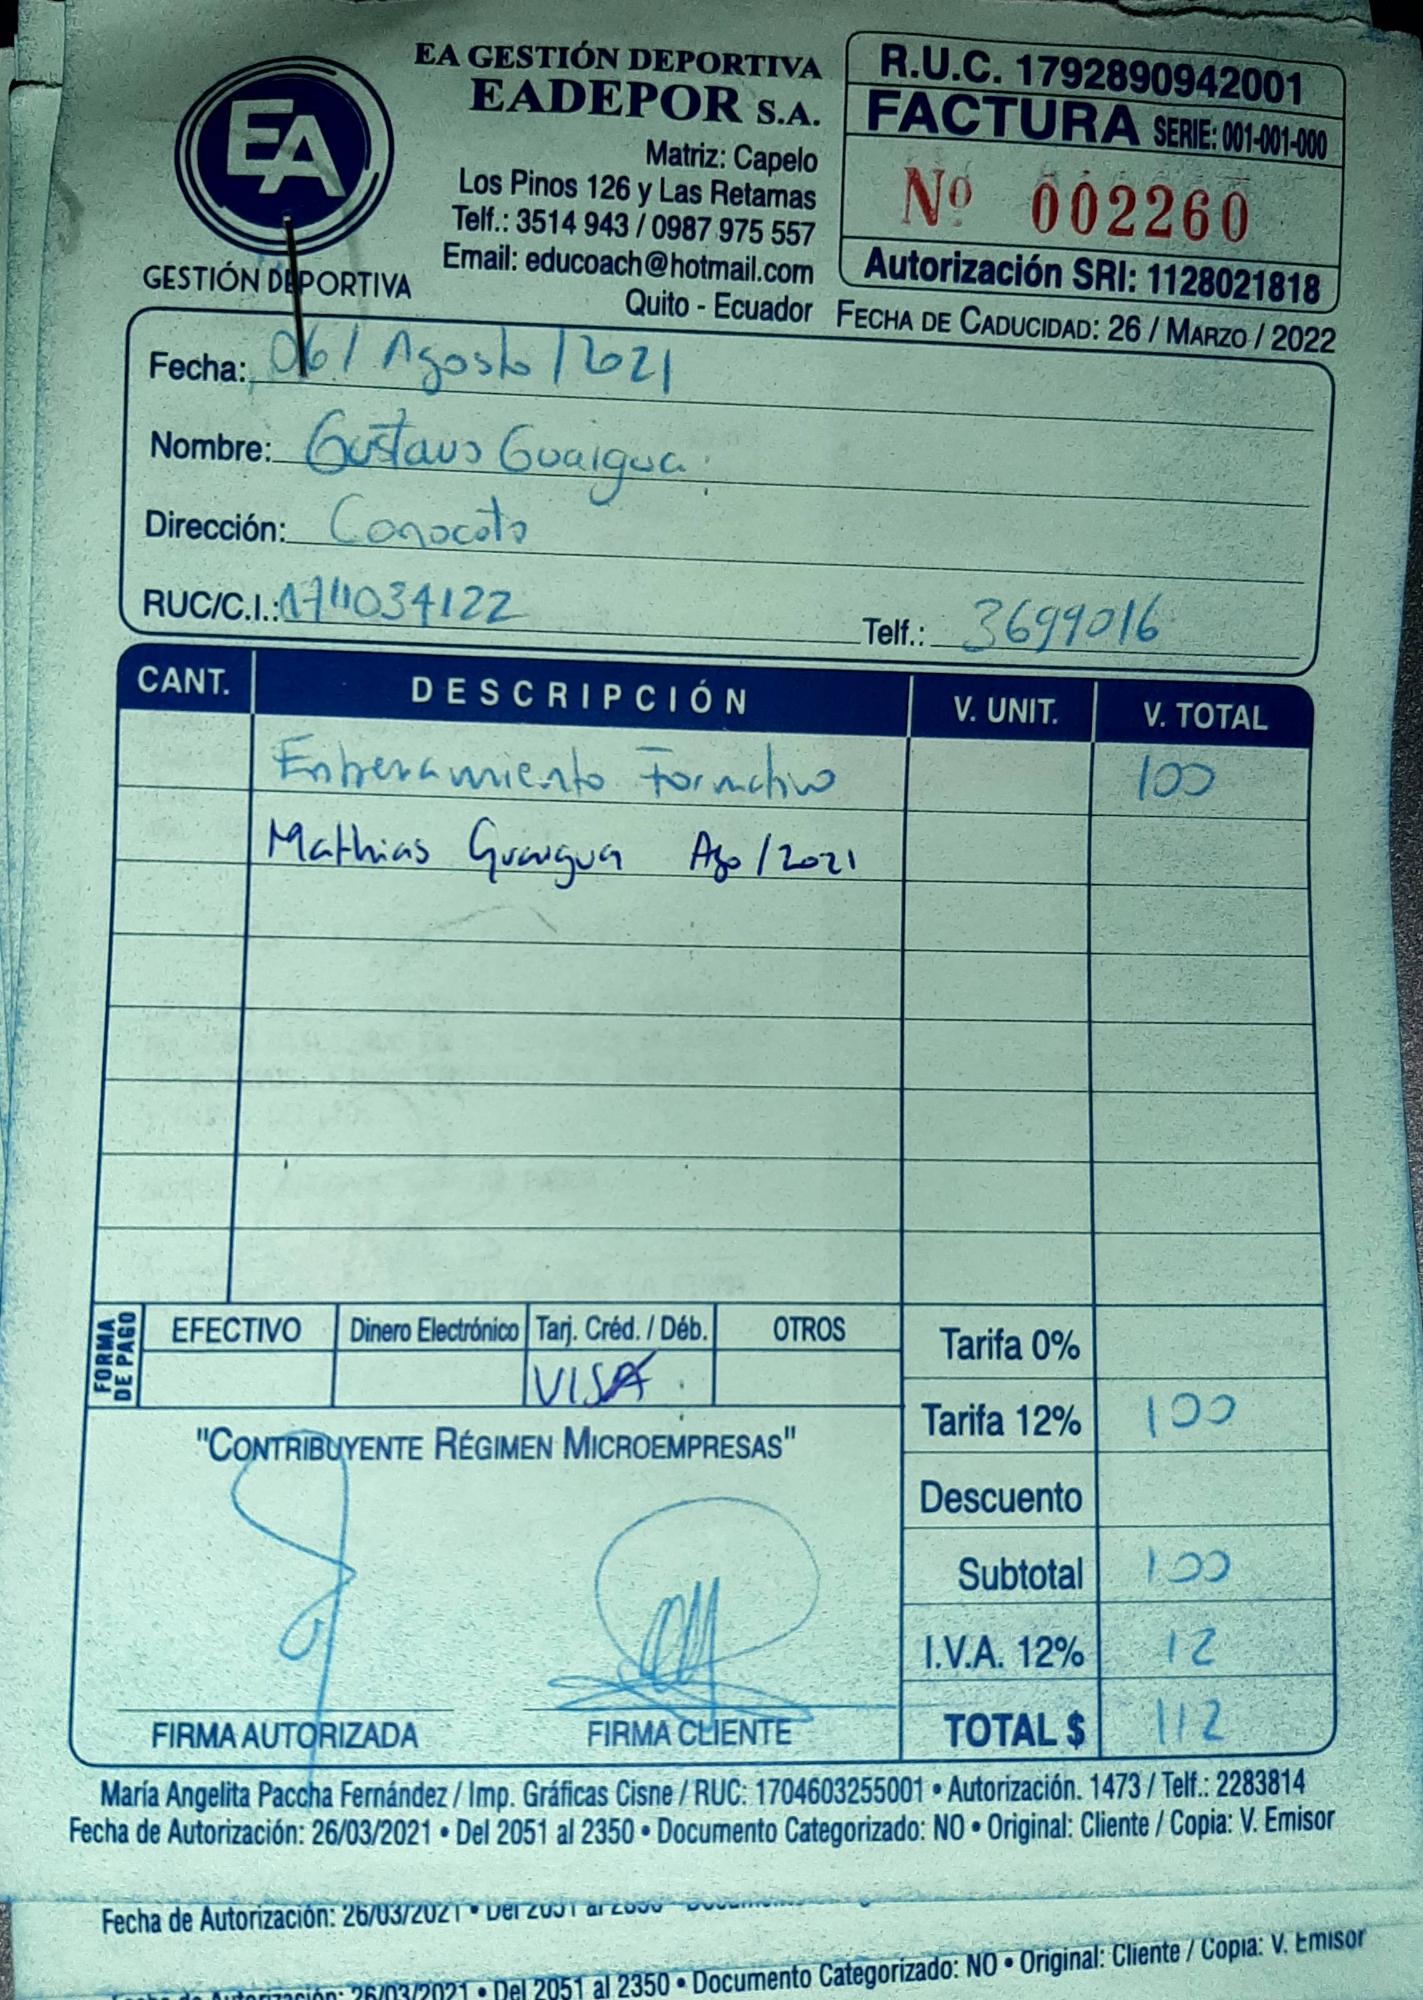 EA
GESTIÓN DEPORTIVA
EA GESTIÓN DEPORTIVA
EADEPOR S.A.
Matriz: Capelo
Los Pinos 126 y Las Retamas
Telf.: 3514 943 / 0987 975 557
Email: educoach@hotmail.com
Quito - Ecuador
R.U.C. 1792890942001
FACTURA SERIE: 001-001-000
Nº 002260
Autorización SRI: 1128021818
FECHA DE CADUCIDAD: 26 / MARZO / 2022
Fecha: 06 / Agosto / 2021
Nombre: Gustavo Guaigua
Dirección: Conocoto
RUC/C.I.: 1711034122 Telf.: 3699016
CANT. DESCRIPCIÓN V. UNIT. V. TOTAL
Entrenamiento Formativo 100
Mathias Guaigua Ago / 2021
FORMA DE PAGO EFECTIVO Dinero Electrónico Tarj. Créd. / Déb. OTROS
VISA
Tarifa 0%
Tarifa 12% 100
Descuento
Subtotal 100
I.V.A. 12% 12
TOTAL $ 112
"CONTRIBUYENTE RÉGIMEN MICROEMPRESAS"
FIRMA AUTORIZADA FIRMA CLIENTE
María Angelita Paccha Fernández / Imp. Gráficas Cisne / RUC: 1704603255001 • Autorización. 1473 / Telf.: 2283814
Fecha de Autorización: 26/03/2021 • Del 2051 al 2350 • Documento Categorizado: NO • Original: Cliente / Copia: V. Emisor
Fecha de Autorización: 26/03/2021 • Del 2051 al 2350
Autorización: 26/03/2021 • Del 2051 al 2350 • Documento Categorizado: NO • Original: Cliente / Copia: V. Emisor